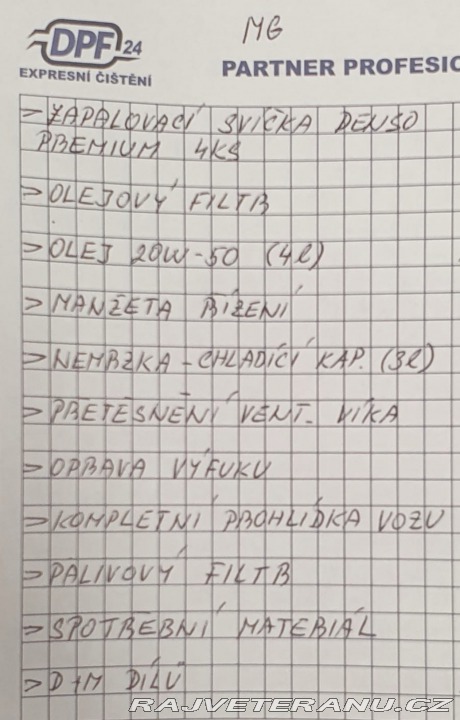 DPF 24
EXPRESNÍ ČIŠTĚNÍ
MG
PARTNER PROFESIO
⇒ ZAPALOVACÍ SVÍČKA DENSO
PREMIUM 4KS
⇒ OLEJOVÝ FILTR
⇒ OLEJ 20W-50 (4l)
⇒ MANŽETA ŘÍZENÍ
⇒ NEMRZKA - CHLADÍCÍ KAP. (3l)
⇒ PŘETĚSNĚNÍ VENT. VÍKA
⇒ OPRAVA VÝFUKU
⇒ KOMPLETNÍ PROHLÍDKA VOZU
⇒ PALIVOVÝ FILTR
⇒ SPOTŘEBNÍ MATERIÁL
⇒ D+M DÍLŮ
RAJVETERANU.CZ